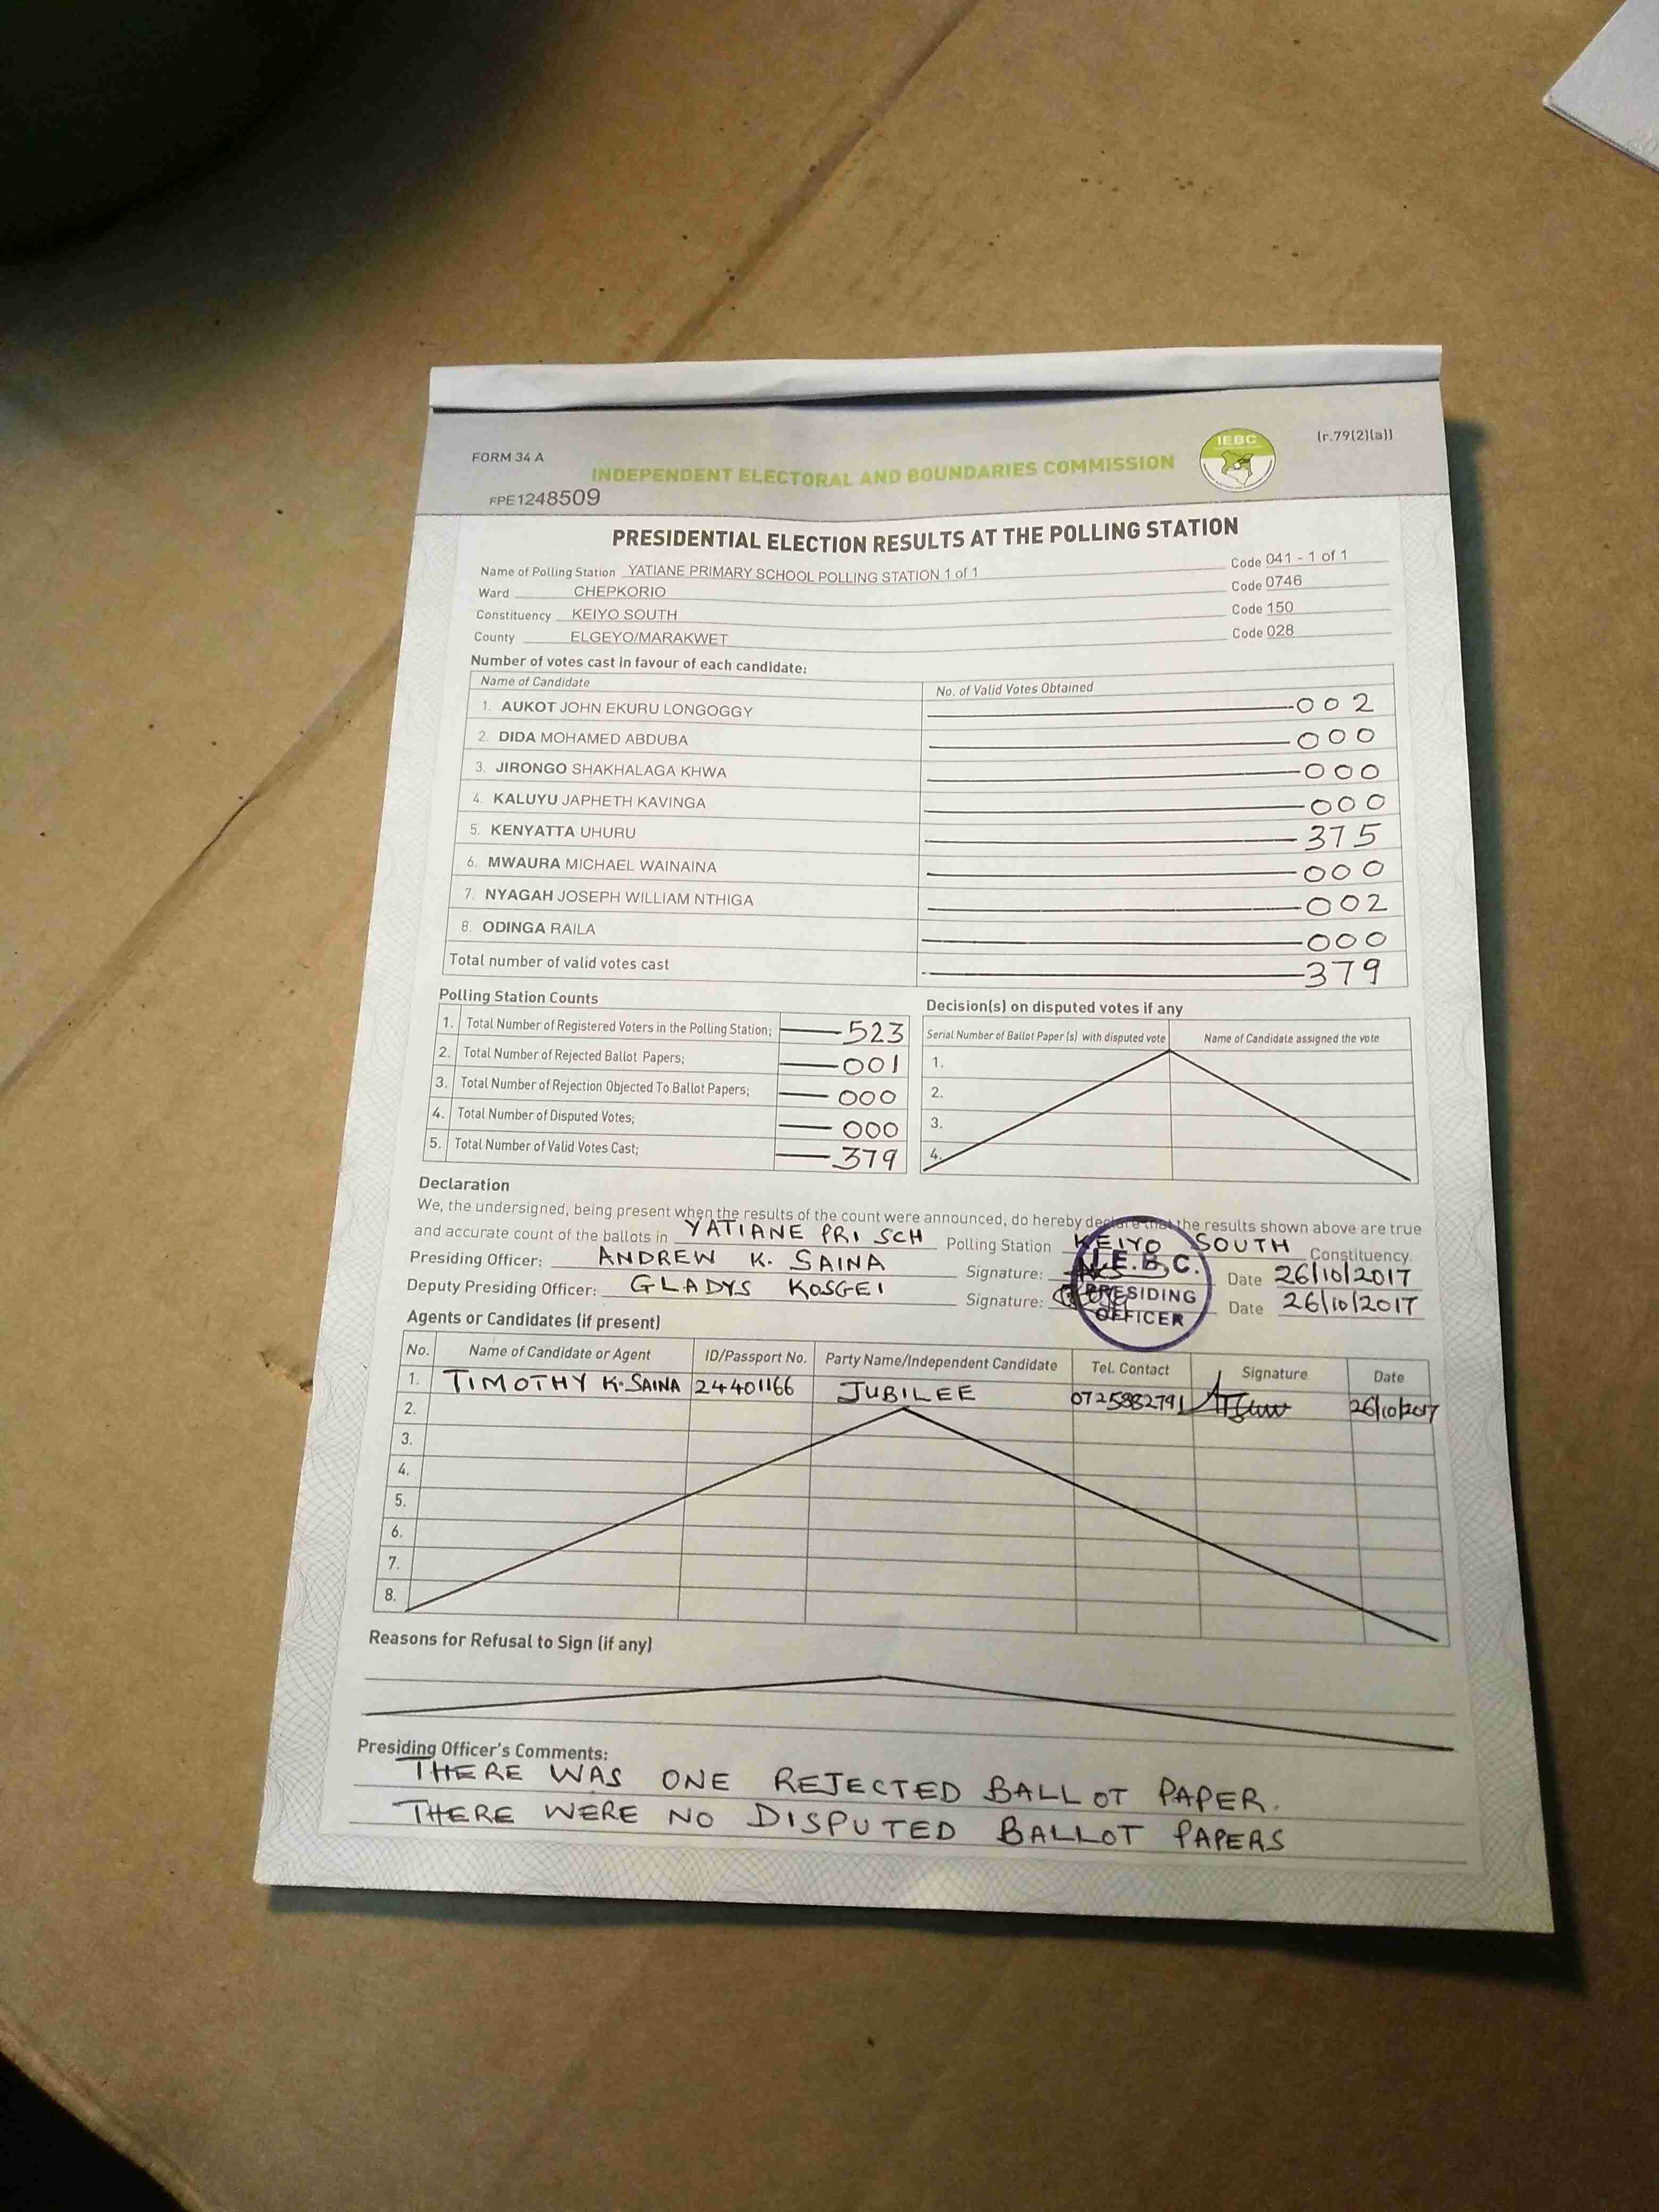 FORM 34 A
(r.79(2)(a))
IEBC
INDEPENDENT ELECTORAL AND BOUNDARIES COMMISSION
FPE1248509
PRESIDENTIAL ELECTION RESULTS AT THE POLLING STATION
Name of Polling Station YATIANE PRIMARY SCHOOL POLLING STATION 1 of 1 Code 041 - 1 of 1
Ward CHEPKORIO Code 0746
Constituency KEIYO SOUTH Code 150
County ELGEYO/MARAKWET Code 028
Number of votes cast in favour of each candidate:
Name of Candidate No. of Valid Votes Obtained
1. AUKOT JOHN EKURU LONGOGGY 002
2. DIDA MOHAMED ABDUBA 000
3. JIRONGO SHAKHALAGA KHWA 000
4. KALUYU JAPHETH KAVINGA 000
5. KENYATTA UHURU 375
6. MWAURA MICHAEL WAINAINA 000
7. NYAGAH JOSEPH WILLIAM NTHIGA 002
8. ODINGA RAILA 000
Total number of valid votes cast 379
Polling Station Counts
1. Total Number of Registered Voters in the Polling Station; 523
2. Total Number of Rejected Ballot Papers; 001
3. Total Number of Rejection Objected To Ballot Papers; 000
4. Total Number of Disputed Votes; 000
5. Total Number of Valid Votes Cast; 379
Decision(s) on disputed votes if any
Serial Number of Ballot Paper(s) with disputed vote Name of Candidate assigned the vote
1.
2.
3.
4.
Declaration
We, the undersigned, being present when the results of the count were announced, do hereby declare that the results shown above are true
and accurate count of the ballots in YATIANE PRI SCH Polling Station KEIYO SOUTH Constituency.
Presiding Officer: ANDREW K. SAINA Signature: Date 26/10/2017
Deputy Presiding Officer: GLADYS KOSGEI Signature: Date 26/10/2017
I.E.B.C.
PRESIDING
OFFICER
Agents or Candidates (if present)
No. Name of Candidate or Agent ID/Passport No. Party Name/Independent Candidate Tel. Contact Signature Date
1. TIMOTHY K. SAINA 24401166 JUBILEE 0725882791 26/10/2017
2.
3.
4.
5.
6.
7.
8.
Reasons for Refusal to Sign (if any)
Presiding Officer's Comments:
THERE WAS ONE REJECTED BALLOT PAPER.
THERE WERE NO DISPUTED BALLOT PAPERS